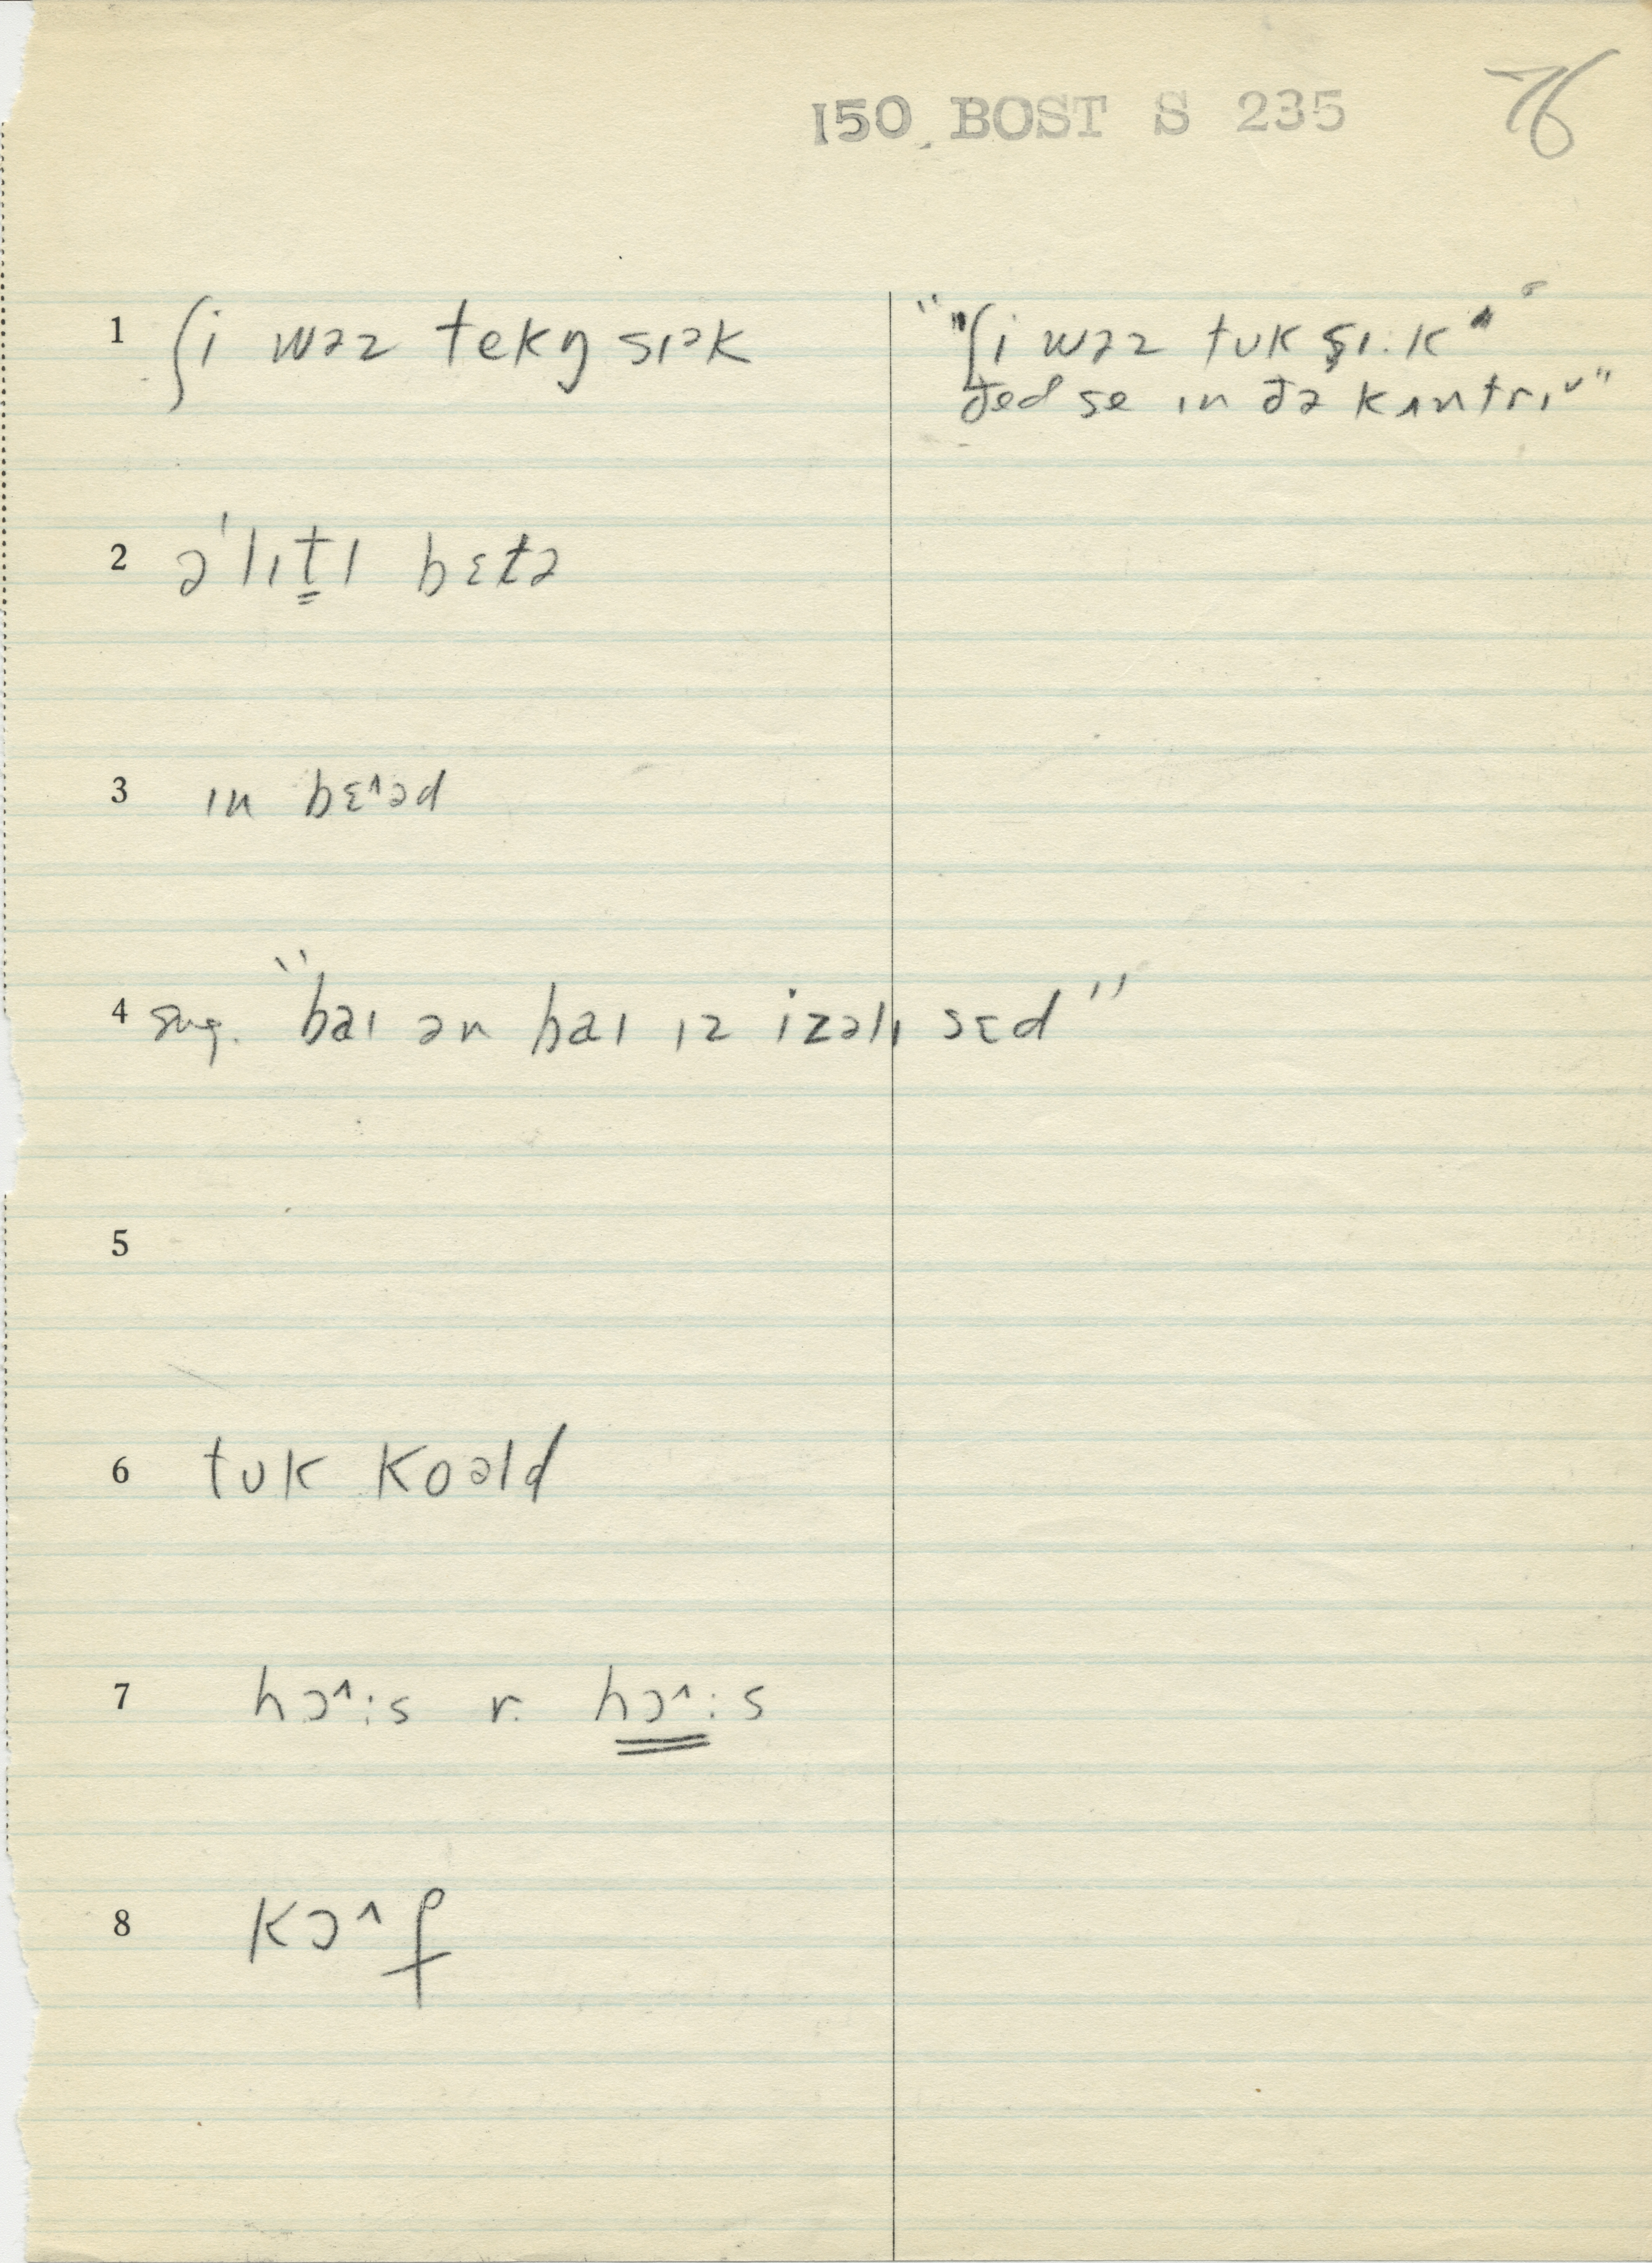 150 BOST S 235 76
1 ʃi wəz tekŋ sɪək
"ʃi wəz tʊk sɪ·k"
ðed se ɪn ðə kʌntrɪ˅"
2 ə'lɪt̳l bɛtə
3 ɪn bɛ^əd
4 sug. "baɪ ən baɪ ɪz izəlɪ sɛd"
5
6 tʊk koəld
7 hɔ^:s r. hɔ^:s
8 kɔ^f